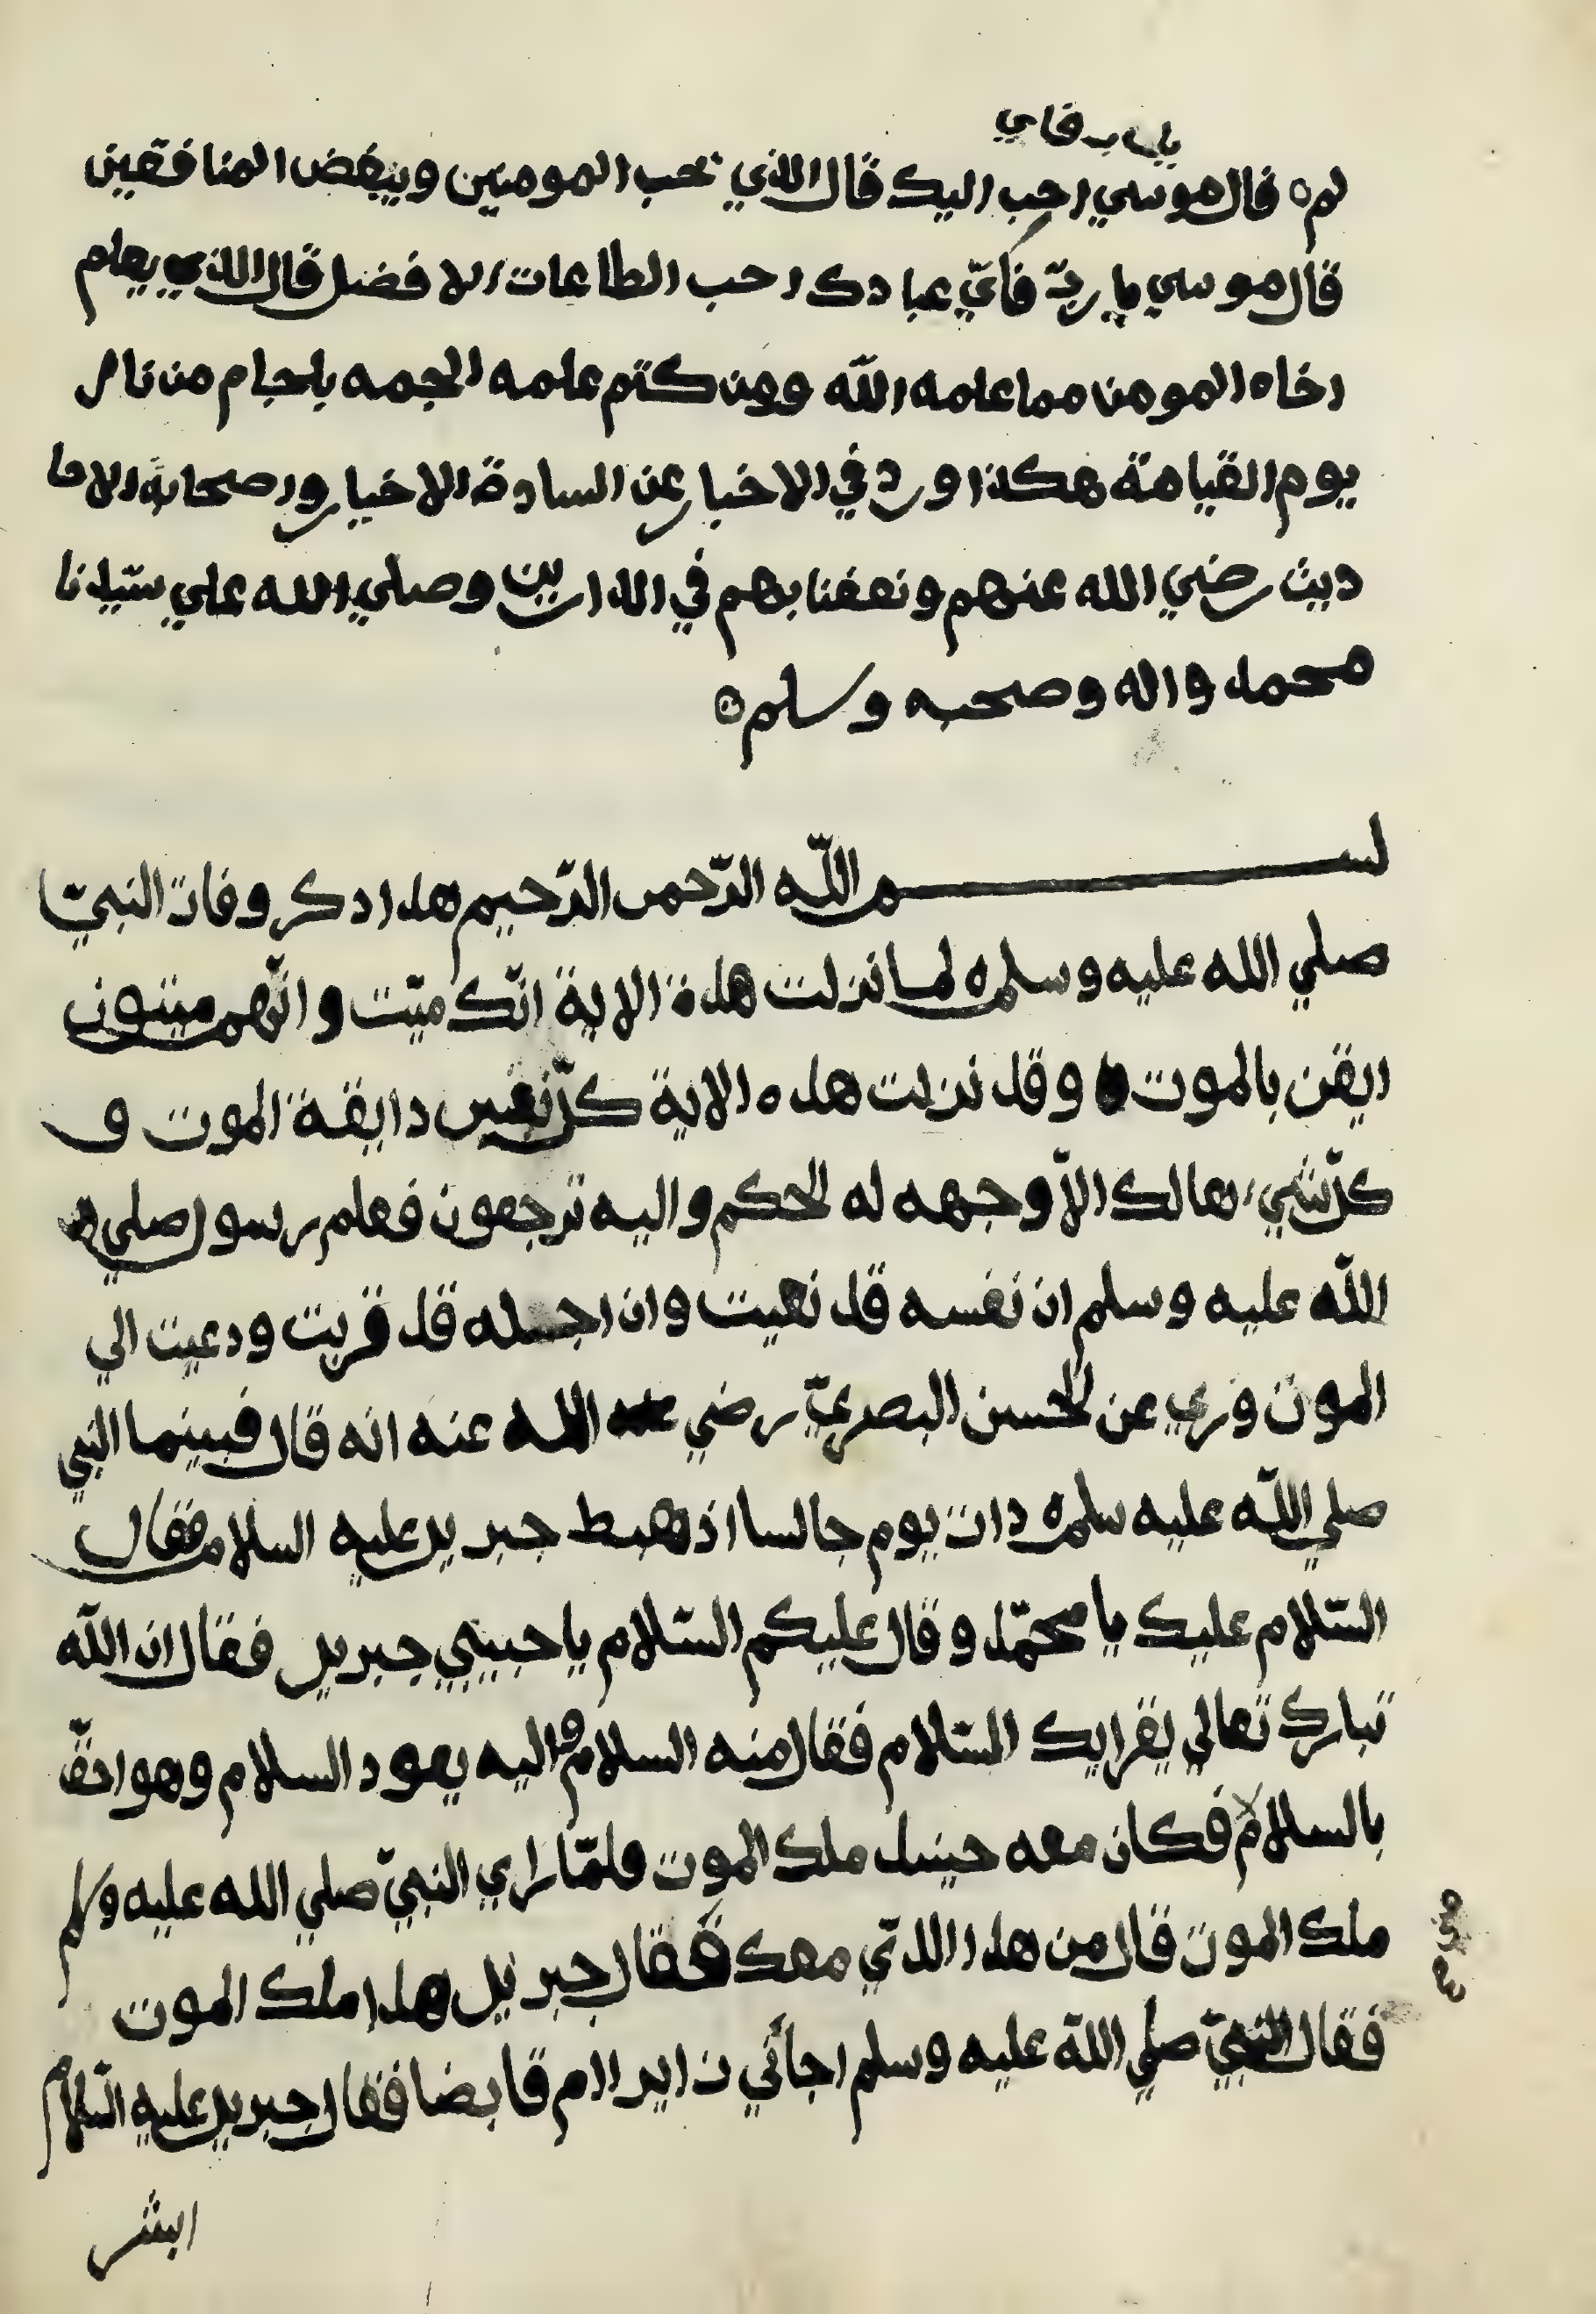 يارب فاي
لم ٥ قال موسي احب اليك قال الذي يحب المومنين ويبغض المنافقين
قال موسي يا ربّ فايّ عبادك احب الطاعات الافضل قال الذي يعلم
اخاه المومن مما علمه الله ومن كتم علمه الجمه بلجام من نار
يوم القيامة هكذا ورد في الاخبار عن السادة الاخيار واصحابه الاحا
ديث رضي الله عنهم ونفعنا بهم في الدارين وصلي الله علي سيّدنا
محمد واله وصحبه وسلم ٥
بسم اللّه الرّحمن الرّحيم هدا دكر وفات النبيّ
صلي الله عليه وسلم ٥ لما نزلت هدة الاية انّك ميّت وانّهم ميتون
ايقن بالموت ٥ وقد نزلت هده الاية كلّ نفس دايقة الموت و
كلّ شيء هالك الاّ وجهه له الحكم واليه ترجعون فعلم رسول صلي
اللّه عليه وسلم ان نفسه قد نعيت وان اجله قد قربت ودعيت الي
الموت وري عن الحسن البصريّ رضي الله عنه انه قال فبينما النبي
صلي اللّه عليه سلم ٥ دات يوم جالسا اذ هبط جبريل عليه السلام فقال
السّلام عليك يا محمّد وقال عليكم السّلام يا حبيبي جبريل فقال ان اللّه
تبارك تعالي يقرايك السّلام فقال منه السلام واليه يعود السلام وهو احقّ
بالسلام فكان معه حينيد ملك الموت فلمّا راي النبيّ صلي الله عليه وسلم
ملك الموت قال من هدا اللدّي معك فقال جبريل هدا ملك الموت
فقال النبيّ صلي اللّه عليه وسلم اجائني زايرا ام قابضا فقال جبريل عليه السّلام
ابشر